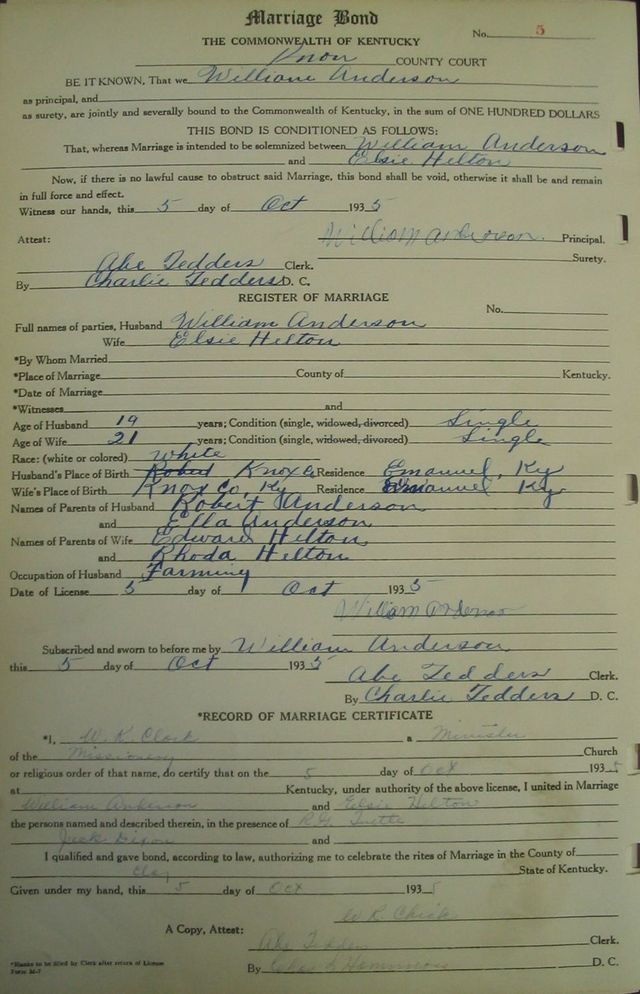 Marriage Bond
No. 5
THE COMMONWEALTH OF KENTUCKY
Knox COUNTY COURT
BE IT KNOWN, That we William Anderson
as principal, and
as surety, are jointly and severally bound to the Commonwealth of Kentucky, in the sum of ONE HUNDRED DOLLARS
THIS BOND IS CONDITIONED AS FOLLOWS:
That, whereas Marriage is intended to be solemnized between William Anderson
and Elsie Hilton
Now, if there is no lawful cause to obstruct said Marriage, this bond shall be void, otherwise it shall be and remain
in full force and effect.
Witness our hands, this 5 day of Oct 1935
William Anderson Principal.
Attest:
Surety.
Abe Tedders Clerk.
By Charlie Tedders D. C.
REGISTER OF MARRIAGE
No.
Full names of parties, Husband William Anderson
Wife Elsie Hilton
*By Whom Married
*Place of Marriage County of Kentucky.
*Date of Marriage
*Witnesses and
Age of Husband 19 years; Condition (single, widowed, divorced) Single
Age of Wife 21 years; Condition (single, widowed, divorced) Single
Race: (white or colored) White
Husband's Place of Birth Robert Knox Co Residence Emanuel, Ky
Wife's Place of Birth Knox Co, Ky Residence Emanuel Ky
Names of Parents of Husband Robert Anderson
and Ella Anderson
Names of Parents of Wife Edward Hilton
and Rhoda Hilton
Occupation of Husband Farming
Date of License 5 day of Oct 1935
William Anderson
Subscribed and sworn to before me by William Anderson
this 5 day of Oct 1935
Abe Tedders Clerk.
By Charlie Tedders D. C.
*RECORD OF MARRIAGE CERTIFICATE
*I, W. K. a Minister
of the Missionary Church
or religious order of that name, do certify that on the 5 day of Oct 1935
at Kentucky, under authority of the above license, I united in Marriage
William Anderson and Elsie Hilton
the persons named and described therein, in the presence of
Jack Dixon and
I qualified and gave bond, according to law, authorizing me to celebrate the rites of Marriage in the County of
Clay State of Kentucky.
Given under my hand, this 5 day of Oct 1935
W. K.
A Copy, Attest:
Abe Tedders Clerk.
By D. C.
*Blanks to be filled by Clerk after return of License
Form M-7